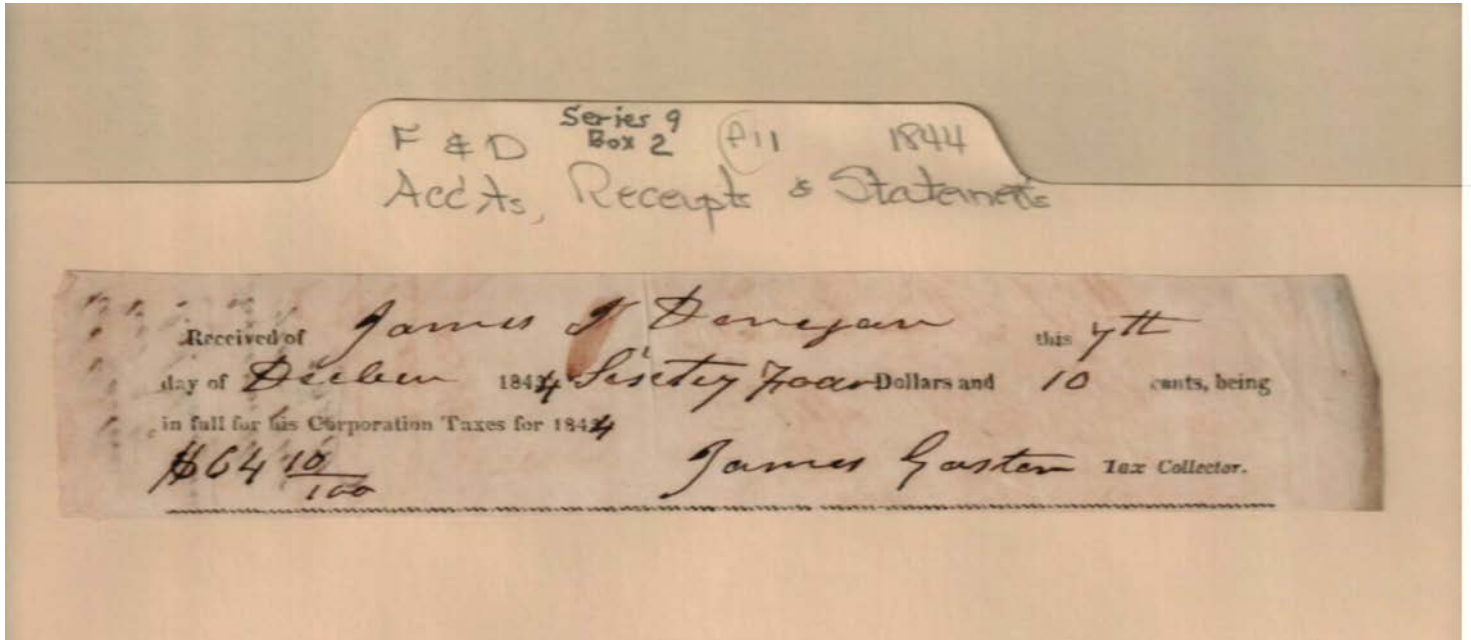 Series 9
F & D Box 2 P11 1844
Acc'ts, Receipts & Statements
Received of James J Donegan this 7th
day of December 1844 Sixty Four Dollars and 10 cents, being
in full for his Corporation Taxes for 1844
$64 10/100 James Gaston Tax Collector.